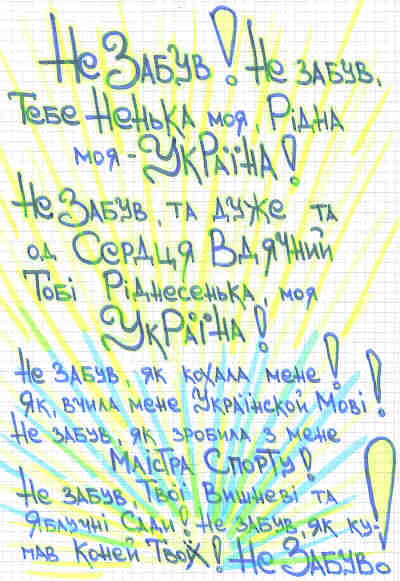 Не Забув! Не забув,
Тебе Ненька моя, Рідна
моя - Україна!
Не Забув, та дуже та
од Сердця Вдячний
Тобі Ріднесенька, моя
Україна!
Не забув, як кохала мене!
Як, вчила мене Українской Мові!
Не забув, як зробила з мене
Маістра Спорту!
Не забув Твої Вишневі та
Яблучні Сади! Не забув, як ку-
мав Коней Твоїх! Не Забув.